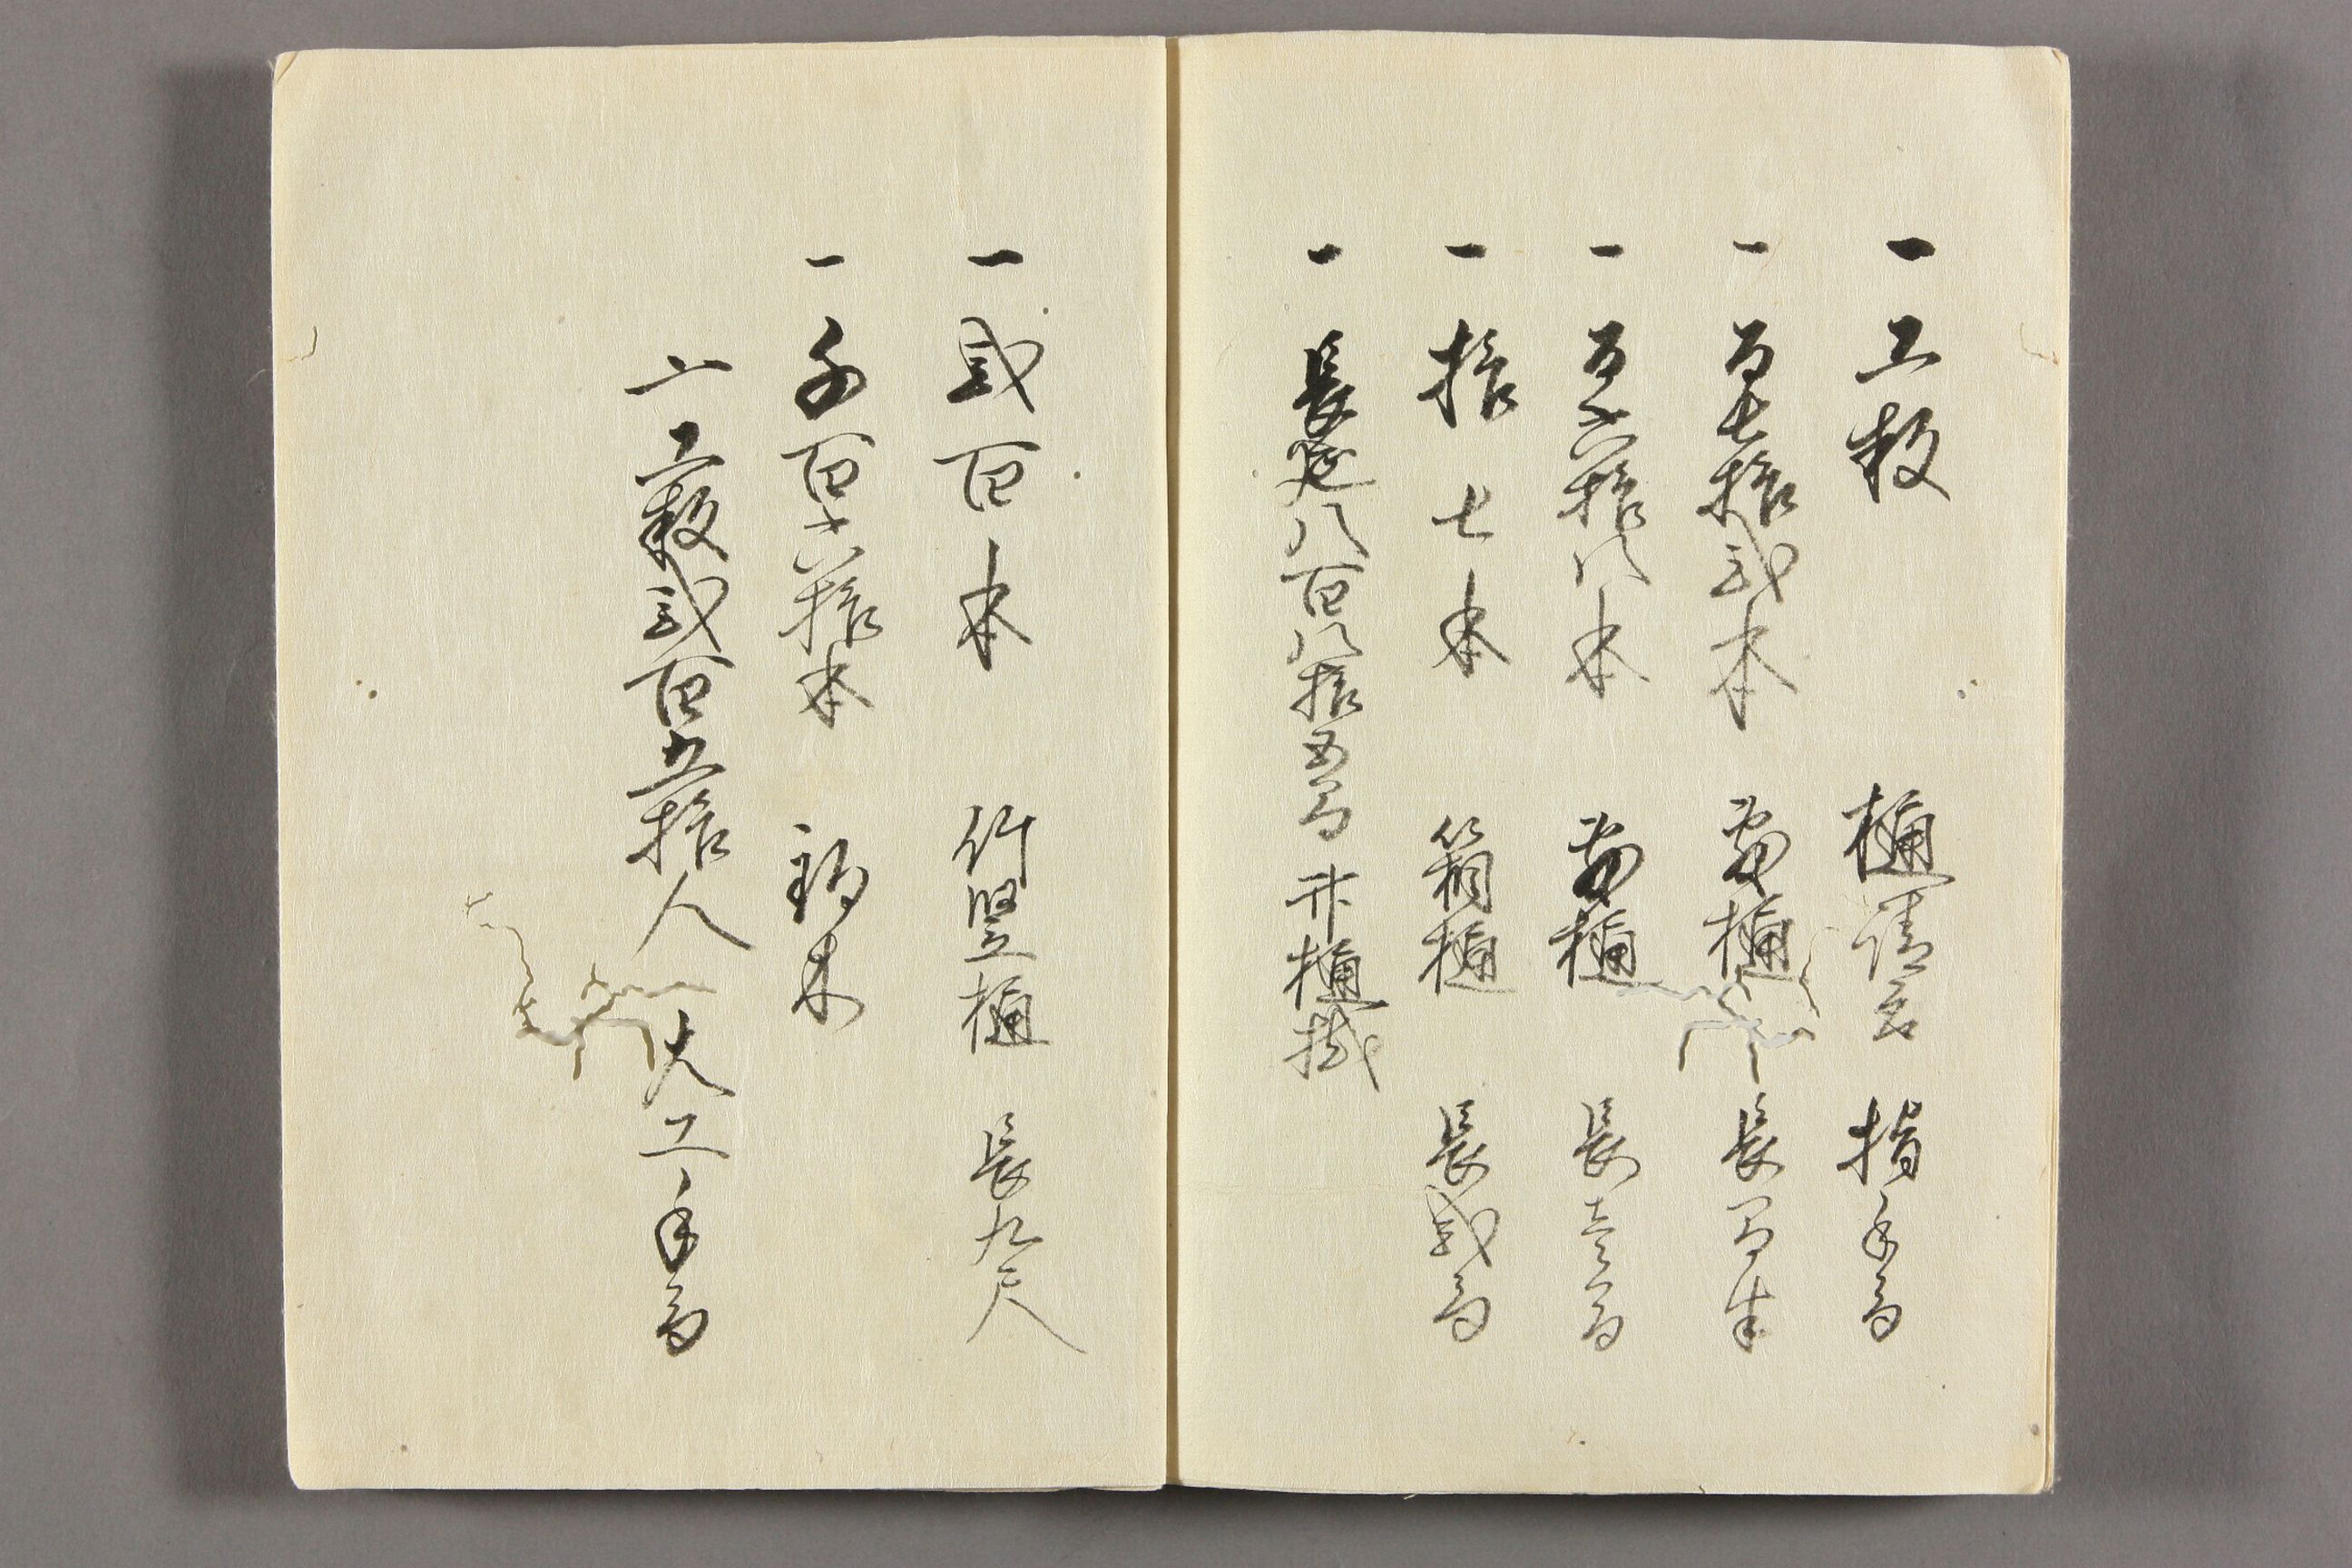 一 工数 樋請台 指手間
一 百七拾弐本 雷樋 長間半
一 百六拾八本 雷樋 長壱間
一 拾七本 箱樋 長弐間
一 長延八百八拾五間 井樋
一 弐百本 竹竪樋 長九尺
一 千百六拾本
一 工数弐百五拾人 大工手間